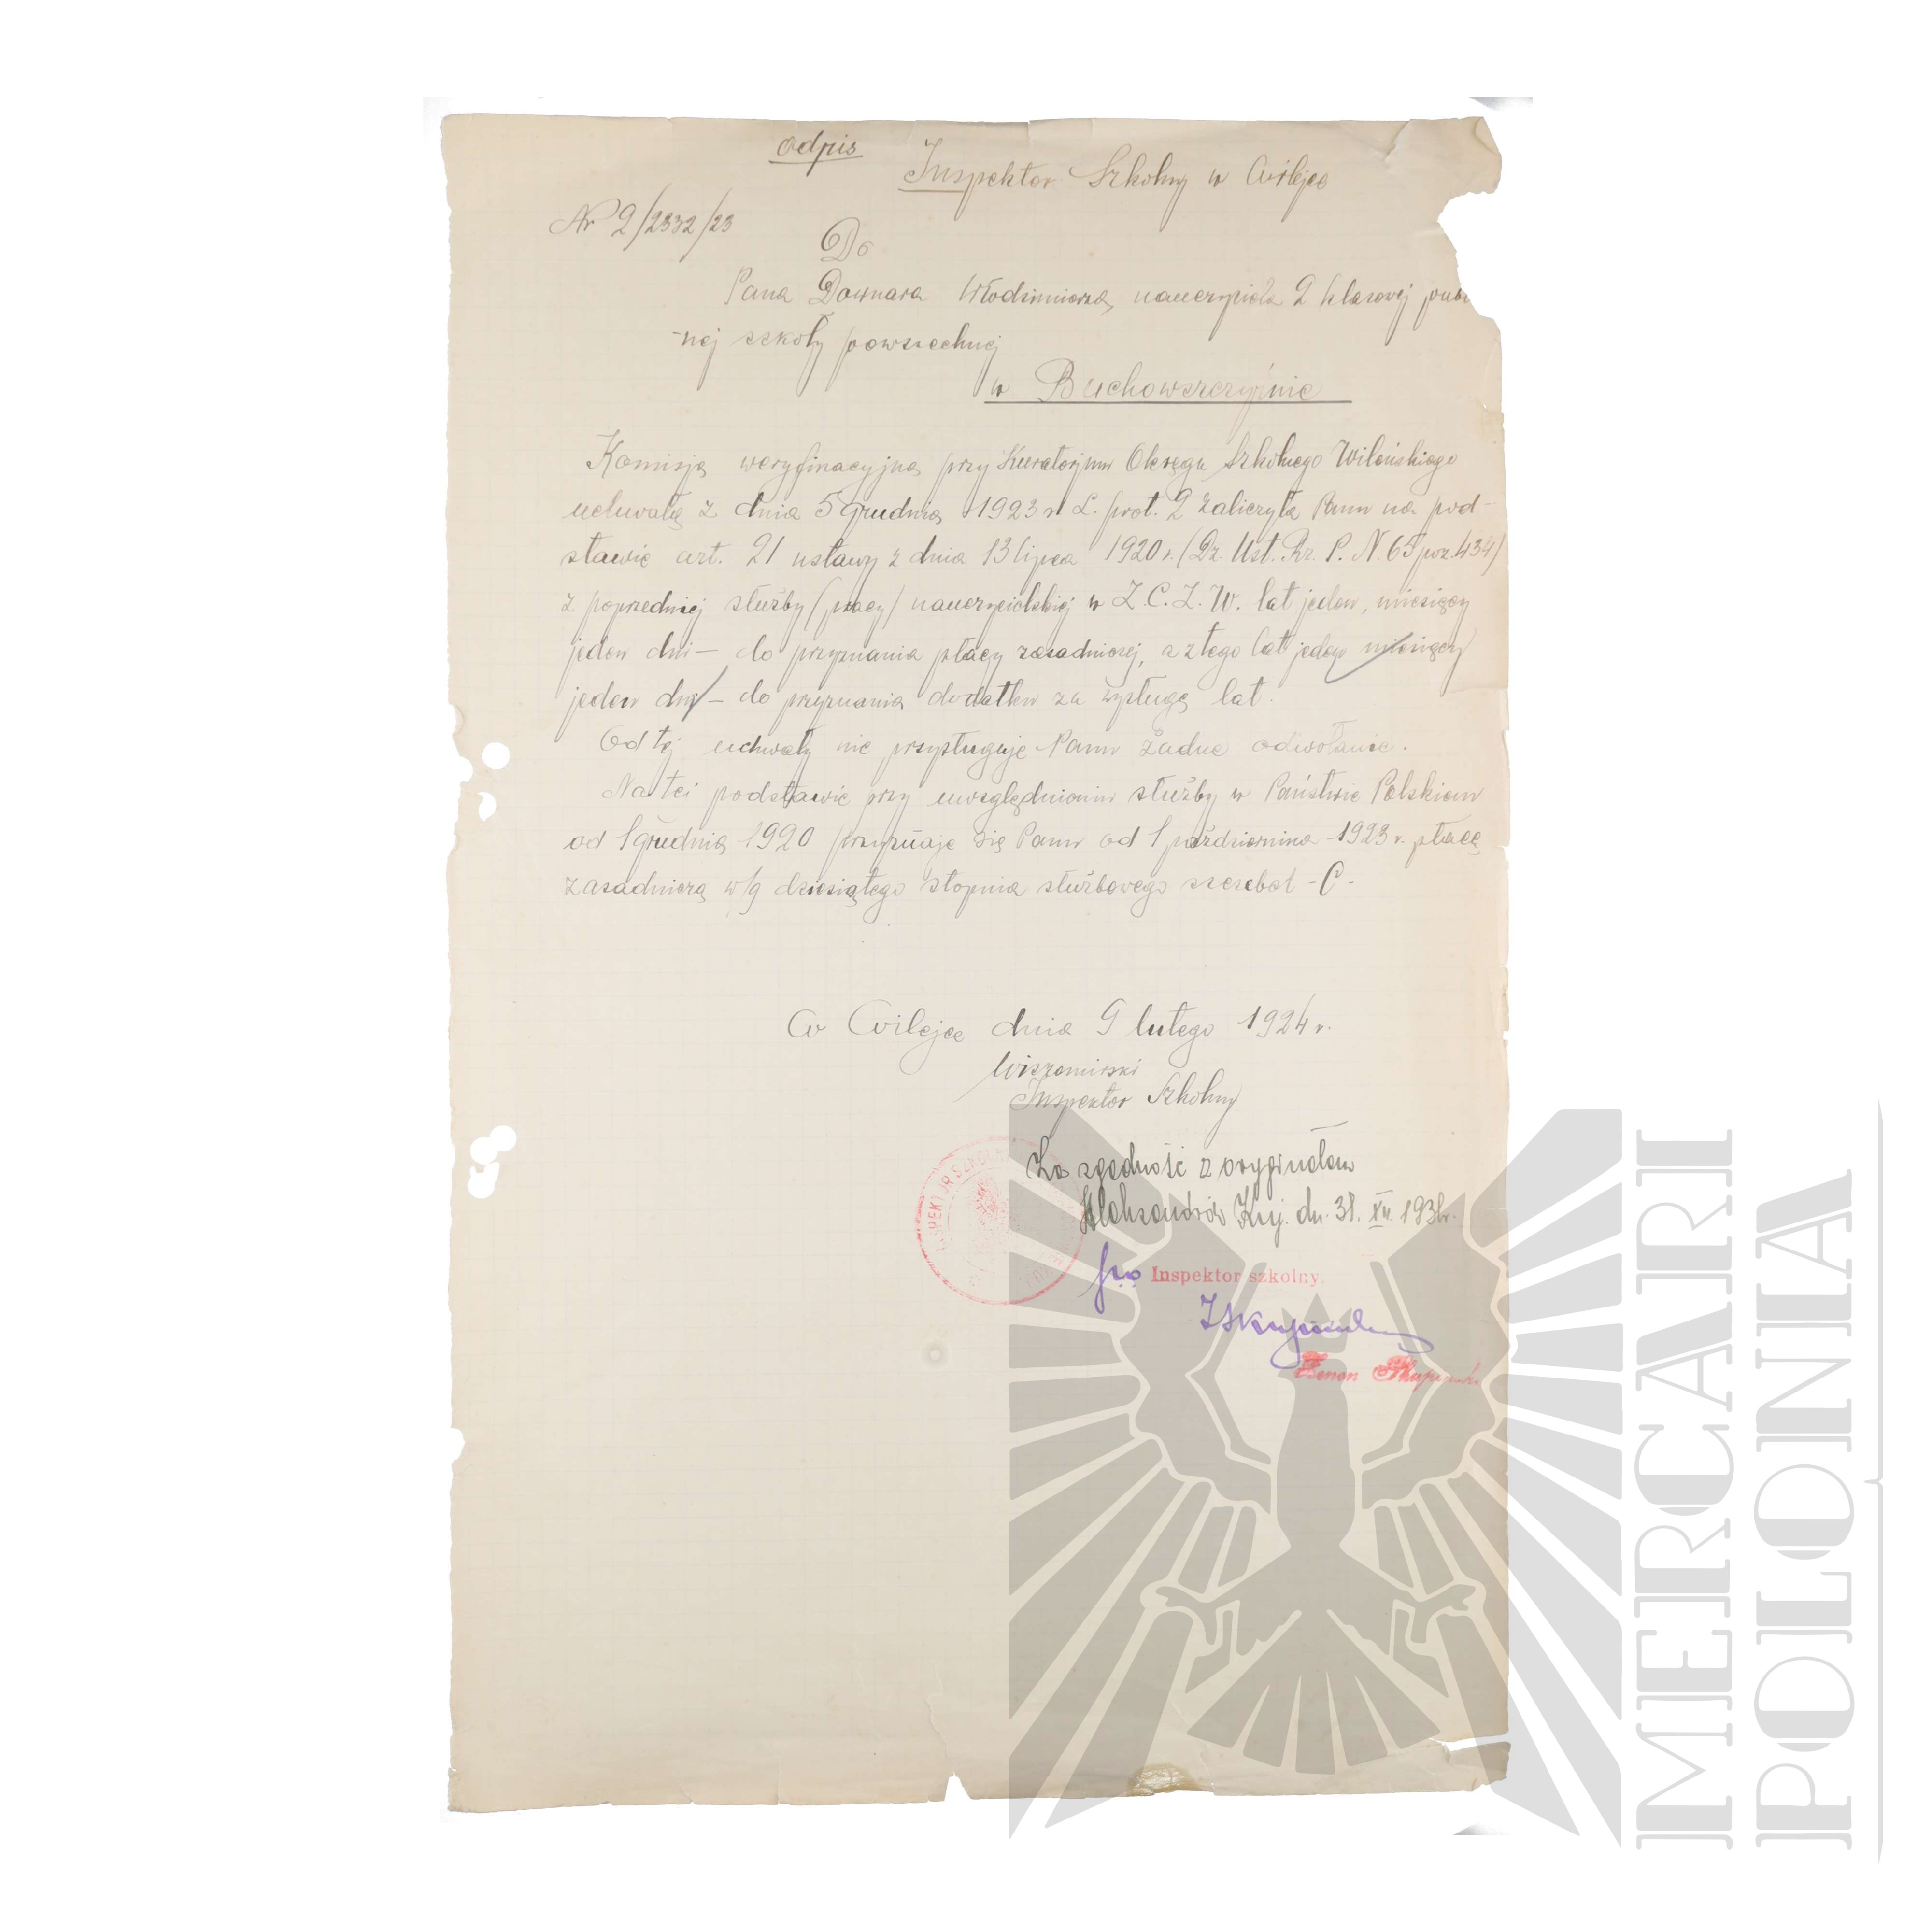 Odpis
Inspektor Szkolny w Wilejce
Nr 2/2332/23
Do
Pana Downara Włodzimierza, nauczyciela 2 klasowej publ
-nej szkoły powszechnej
w Buchowszczyźnie
Komisja weryfinacyjna przy Kuratorjum Okręgu Szkolnego Wileńskiego
uchwałą z dnia 5 grudnia 1923 r. L. prot. 2 zaliczyła Panu na pod-
stawie art. 21 ustawy z dnia 13 lipca 1920 r. (Dz. Ust. Rz. P. N. 65 poz 434)
z poprzedniej służby (pracy) nauczycielskiej w Z.C.Z.W. lat jeden, miesięcy
jeden dni — do przyznania płacy zasadniczej, a z tego lat jeden miesięcy
jeden dni — do przyznania dodatku za wysługę lat.
Od tej uchwały nie przysługuje Panu żadne odwołanie.
Na tej podstawie przy uwzględnieniu służby w Państwie Polskiem
od 1 grudnia 1920 przyznaje się Panu od 1 października 1923 r. płacę
zasadniczą w/g dziesiątego stopnia służbowego szczebel - C -
W Wilejce dnia 9 lutego 1924 r.
Wiszomirski
Inspektor Szkolny
Za zgodność z oryginałem
Aleksandrów Kuj. dn. 31. XII. 193
INSPEKTOR SZKOLNY
Inspektor szkolny
Zenon
IMERCARI
POLONIA